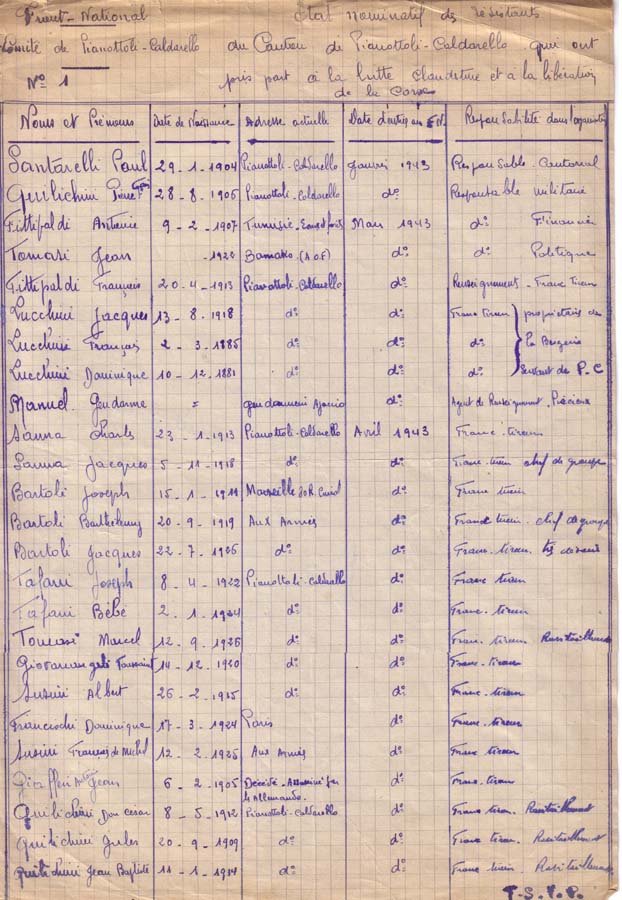 Front - National État nominatif des résistants
Comité de Pianottoli-Caldarello du Canton de Pianottoli-Caldarello qui ont
N° 1 pris part à la lutte clandestine et à la libération
de la Corse
Noms et Prénoms Date de Naissance Adresse actuelle Date d'entrée au F.N. Responsabilité dans l'organisation
Santarelli Paul 29-1-1904 Pianottoli-Caldarello Janvier 1943 Responsable Cantonal
Quilichini Pierre 28-8-1905 Pianottoli-Caldarello d° Responsable militaire
Fittipaldi Antoine 9-2-1907 Tunisie Mars 1943 d° Financier
Tomasi Jean -1922 Bamako (A.O.F) d° d° Politique
Fittipaldi François 20-4-1913 Pianottoli-Caldarello d° Renseignement - Franc Tireur
Lucchini Jacques 13-8-1918 d° d° Franc tireur propriétaire de
Lucchini François 2-3-1885 d° d° d° la Bergerie
Lucchini Dominique 10-12-1881 d° d° d° servant de P.C
Manuel Gendarme = gendarmerie Ajaccio d° Agent de Renseignement - Précieux
Sanna Charles 23-1-1913 Pianottoli-Caldarello Avril 1943 Franc-tireur
Sanna Jacques 5-11-1918 d° d° Franc-tireur chef de groupe
Bartoli Joseph 15-1-1911 Marseille d° Franc tireur
Bartoli Barthélemy 20-9-1919 Aux Armées d° Franc tireur - chef de groupe
Bartoli Jacques 22-7-1926 d° d° Franc-tireur
Tafani Joseph 8-4-1922 Pianottoli-Caldarello d° Franc tireur
Tafani Bébé 2-1-1924 d° d° Franc-tireur
Tomasi Marcel 12-9-1926 d° d° Franc-tireur Ravitaillement
Giovannangeli Toussaint 14-12-1920 d° d° Franc-tireur
Susini Albert 26-2-1915 d° d° Franc-tireur
Franceschi Dominique 17-3-1924 Paris d° Franc-tireur
Susini François de Michel 12-2-1925 Aux Armées d° Franc tireur
Giafferi Antoine Jean 6-2-1905 Décédé - Assassiné par d° Franc-tireur
les Allemands.
Quilichini Don César 8-5-1912 Pianottoli-Caldarello d° Franc tireur. Ravitaillement
Quilichini Jules 20-9-1909 d° d° Franc tireur. Ravitaillement
Quilichini Jean Baptiste 11-1-1914 d° d° Franc tireur - Ravitaillement
T.S.V.P.